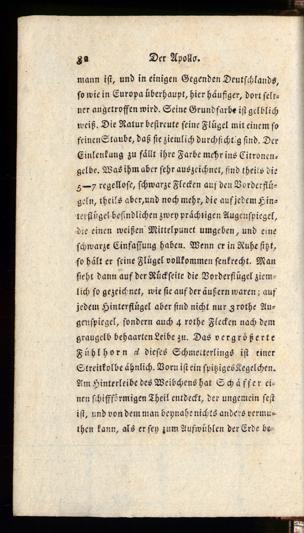 82 Der Apollo.
mann ist, und in einigen Gegenden Deutschlands,
so wie in Europa überhaupt, hier häufiger, dort selt-
ner angetroffen wird. Seine Grundfarbe ist gelblich
weiß. Die Natur bestreute seine Flügel mit einem so
feinen Staube, daß sie ziemlich durchsichtig sind. Der
Einlenkung zu fällt ihre Farbe mehr ins Citronen-
gelbe. Was ihm aber sehr auszeichnet, sind theils die
5—7 regellose, schwarze Flecken auf den Vorderflü-
geln, theils aber, und noch mehr, die auf jedem Hin-
terflügel befindlichen zwey prächtigen Augenspiegel,
die einen weißen Mittelpunct umgeben, und eine
schwarze Einfassung haben. Wenn er in Ruhe sitzt,
so hält er seine Flügel vollkommen senkrecht. Man
sieht dann auf der Rückseite die Vorderflügel ziem-
lich so gezeichnet, wie sie auf der äußern waren; auf
jedem Hinterflügel aber sind nicht nur 3 rothe Au-
genspiegel, sondern auch 4 rothe Flecken nach dem
graugelb behaarten Leibe zu. Das vergrößerte
Fühlhorn d dieses Schmetterlings ist einer
Streitkolbe ähnlich. Vorn ist ein spitziges Kegelchen.
Am Hinterleibe des Weibchens hat Schäffer ei-
nen schiffförmigen Theil entdeckt, der ungemein fest
ist, und von dem man beynahe nichts anders vermu-
then kann, als er sey zum Aufwühlen der Erde be-